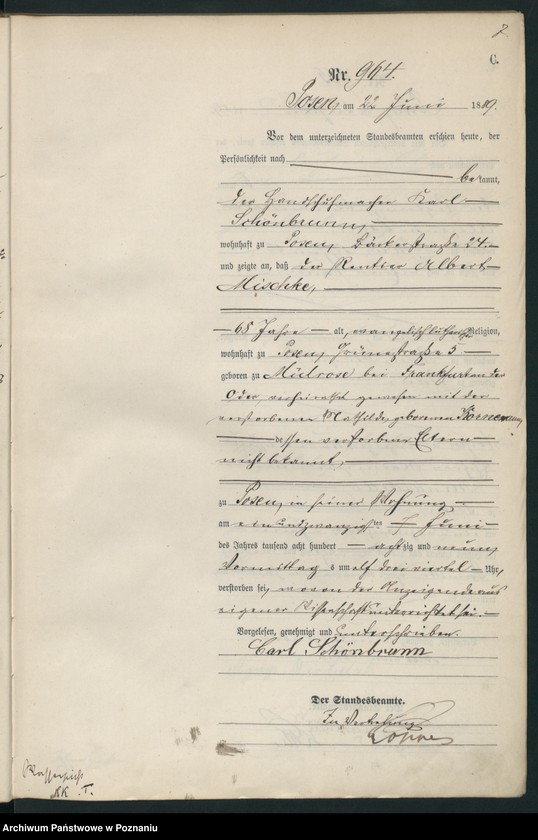 7
C.
Nr. 964.
Posen, am 22 Juni 1889.
Vor dem unterzeichneten Standesbeamten erschien heute, der
Persönlichkeit nach
bekannt,
der Handschuhmacher Karl
Schönbrunn,
wohnhaft zu Posen, Bäckerstraße 24
und zeigte an, daß der Rentier Albert
Mischke,
65 Jahre alt, evangelisch lutherischer Religion,
wohnhaft zu Posen, Grünestraße 5
geboren zu Müllrose bei Frankfurt an der
Oder, verheirathet gewesen mit der
verstorbenen Mathilde geborenen
dessen verstorbene Eltern
nicht bekannt,
zu Posen, in seiner Wohnung
am einundzwanzigsten Juni
des Jahres tausend acht hundert achtzig und neun,
Vormittags um elf drei viertel Uhr,
verstorben sei, wovon der Anzeigende aus
eigener Wissenschaft unterrichtet sei.
Vorgelesen, genehmigt und unterschrieben
Carl Schönbrunn
Der Standesbeamte.
In Vertretung
Archiwum Państwowe w Poznaniu